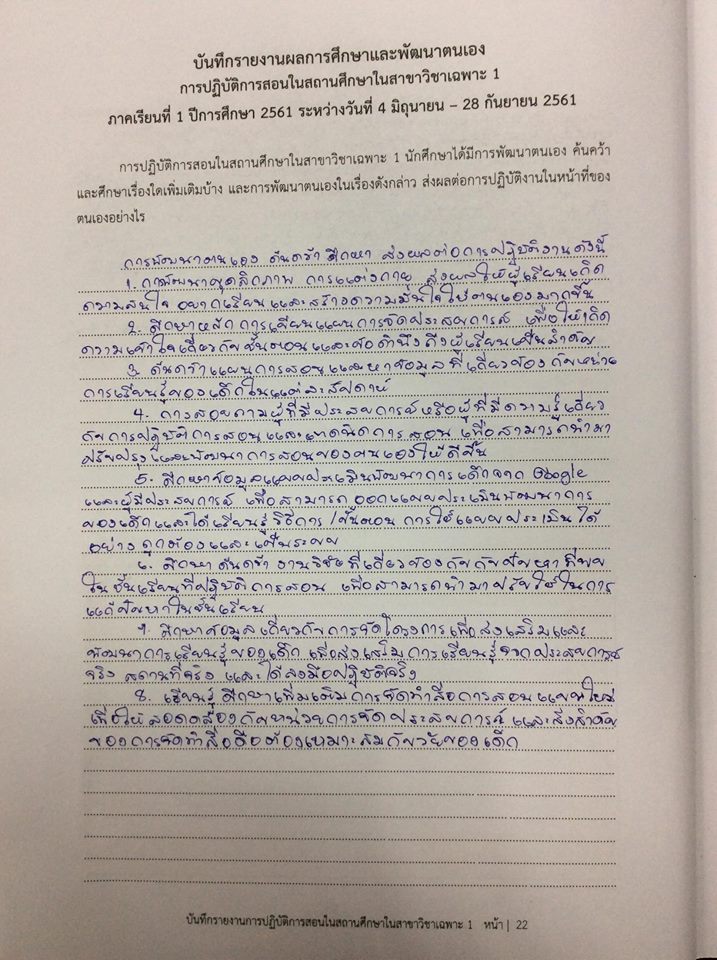 บันทึกรายงานผลการศึกษาและพัฒนาตนเอง
การปฏิบัติการสอนในสถานศึกษาในสาขาวิชาเฉพาะ 1
ภาคเรียนที่ 1 ปีการศึกษา 2561 ระหว่างวันที่ 4 มิถุนายน – 28 กันยายน 2561
การปฏิบัติการสอนในสถานศึกษาในสาขาวิชาเฉพาะ 1 นักศึกษาได้มีการพัฒนาตนเอง ค้นคว้า
และศึกษาเรื่องใดเพิ่มเติมบ้าง และการพัฒนาตนเองในเรื่องดังกล่าว ส่งผลต่อการปฏิบัติงานในหน้าที่ของ
ตนเองอย่างไร
การพัฒนาตนเอง ค้นคว้า ศึกษา ส่งผลต่อการปฏิบัติงานดังนี้
1. การพัฒนาบุคลิกภาพ การแต่งกาย ส่งผลให้ผู้เรียนเกิด
ความสนใจ อยากเรียนและสร้างความมั่นใจให้ตนเองมากขึ้น
2. ศึกษาหลักการเขียนแผนการจัดประสบการณ์ เพื่อให้เกิด
ความเข้าใจเกี่ยวกับขั้นตอนและข้อคำนึงถึงผู้เรียนเป็นสำคัญ
3. ค้นคว้าแผนการสอนและหาข้อมูลที่เกี่ยวข้องกับหน่วย
การเรียนรู้ของเด็กในแต่ละสัปดาห์
4. การสอบถามผู้ที่มีประสบการณ์หรือผู้ที่มีความรู้เกี่ยว
กับการปฏิบัติการสอนและเทคนิคการสอน เพื่อสามารถนำมา
ปรับปรุงและพัฒนาการสอนของตนเองให้ดีขึ้น
5. ศึกษาข้อมูลแบบประเมินพัฒนาการเด็กจาก Google
และผู้มีประสบการณ์ เพื่อสามารถออกแบบประเมินพัฒนาการ
ของเด็กและได้เรียนรู้วิธีการ/ขั้นตอน การใช้แบบประเมินได้
อย่างถูกต้องและเป็นระบบ
6. ศึกษาค้นคว้า งานวิจัยที่เกี่ยวข้องกับกับปัญหาที่พบ
ในชั้นเรียนที่ปฏิบัติการสอน เพื่อสามารถนำมาปรับใช้ในการ
แก้ปัญหาในชั้นเรียน
7. ศึกษาข้อมูลเกี่ยวกับการจัดโครงการเพื่อส่งเสริมและ
พัฒนาการเรียนรู้ของเด็ก เพื่อส่งเสริมการเรียนรู้จากประสบการณ์
จริง สถานที่จริง และได้ลงมือปฏิบัติจริง
8. เรียนรู้ ศึกษาเพิ่มเติมการจัดทำสื่อการสอนแบบใหม่
เพื่อให้สอดคล้องกับหน่วยการจัดประสบการณ์ และสิ่งสำคัญ
ของการจัดทำสื่อคือต้องเหมาะสมกับวัยของเด็ก
บันทึกรายงานการปฏิบัติการสอนในสถานศึกษาในสาขาวิชาเฉพาะ 1 หน้า | 22